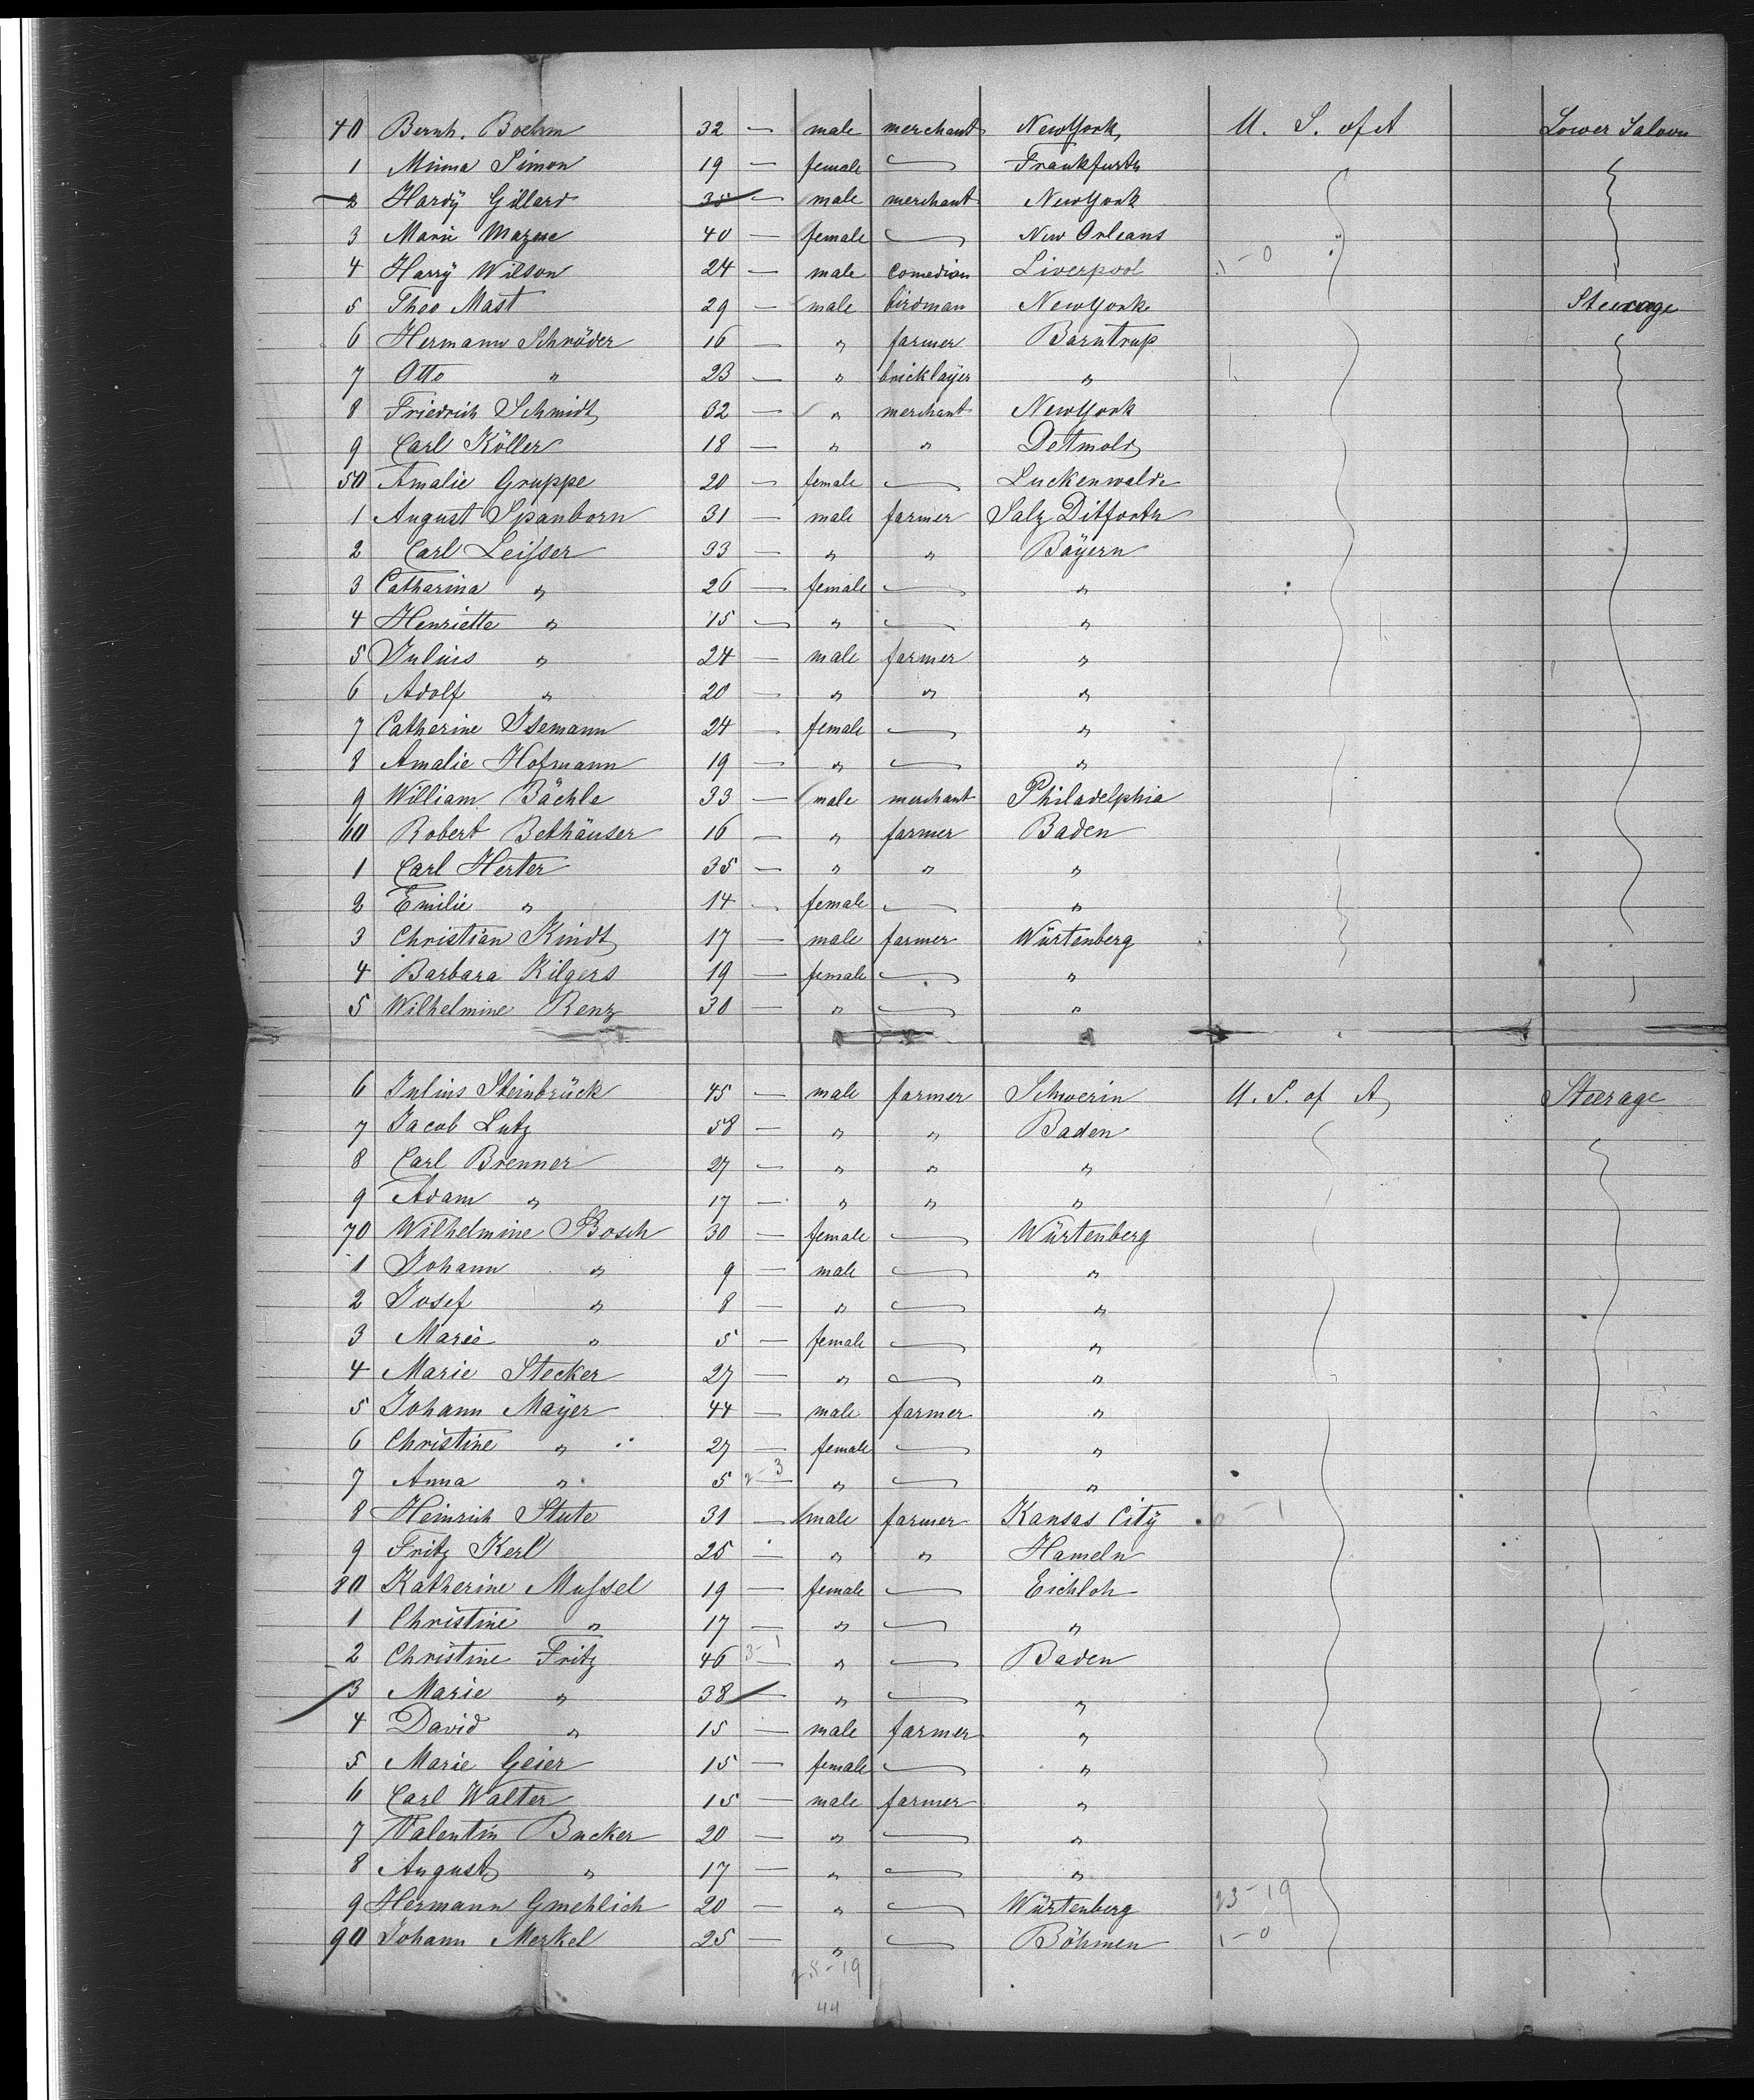 40 Bernh. Boehm 32 — male merchant NewYork, U. S. of A Lower Saloon
1 Minna Simon 19 — female — Frankfurth
2 Hardÿ Gillard 35 — male merchant NewYork
3 Marie Mazac 40 — female — New Orleans
4 Harrÿ Wilson 24 — male comedian Liverpool 1-0
5 Theo Mast 29 — male birdman NewYork Steerage
6 Hermann Schröder 16 — " farmer Barntrup
7 Otto " 23 — " bricklaÿer "
8 Friedrich Schmidt 32 — " merchant NewYork
9 Carl Köller 18 — " " Detmold
50 Amalie Gruppe 20 — female — Luckenwalde
1 August Spanborn 31 — male farmer Salz Ditforth
2 Carl Leisser 33 — " " Baÿern
3 Catharina " 26 — female — "
4 Henriette " 15 — " — "
5 Julius " 24 — male farmer "
6 Adolf " 20 — " " "
7 Catherine Isemann 24 — female — "
8 Amalie Hofmann 19 — " — "
9 William Bächle 33 — male merchant Philadelphia
60 Robert Bethäuser 16 — " farmer Baden
1 Carl Herter 35 — " " "
2 Emilie " 14 — female — "
3 Christian Kindt 17 — male farmer Würtenberg
4 Barbara Kilgers 19 — female — "
5 Wilhelmine Renz 30 — " — "
6 Julius Steinbrück 45 — male farmer Schwerin U. S. of A Steerage
7 Jacob Lutz 58 — " " Baden
8 Carl Brenner 27 — " " "
9 Adam " 17 — " " "
70 Wilhelmine Bosch 30 — female — Würtenberg
1 Johann " 9 — male — "
2 Josef " 8 — " — "
3 Marie " 5 — female — "
4 Marie Stecker 27 — " — "
5 Johann Maÿer 44 — male farmer "
6 Christine " 27 — female — "
7 Anna " 5 2-3 — " — "
8 Heinrich Stute 31 — male farmer Kansas Citÿ 0-1
9 Fritz Kerl 25 — " " Hameln
80 Katherine Mussel 19 — female — Eichloh
1 Christine " 17 — " — "
2 Christine Fritz 46 3-1 — " — Baden
3 Marie " 38 — " — "
4 David " 15 — male farmer "
5 Marie Geier 15 — female — "
6 Carl Walter 15 — male farmer "
7 Valentin Bucker 20 — " — "
8 August " 17 — " — "
9 Hermann Gmehlich 20 — " — Würtenberg 23-19
90 Johann Merkel 25 — " — Böhmen 1-0
25-19
44